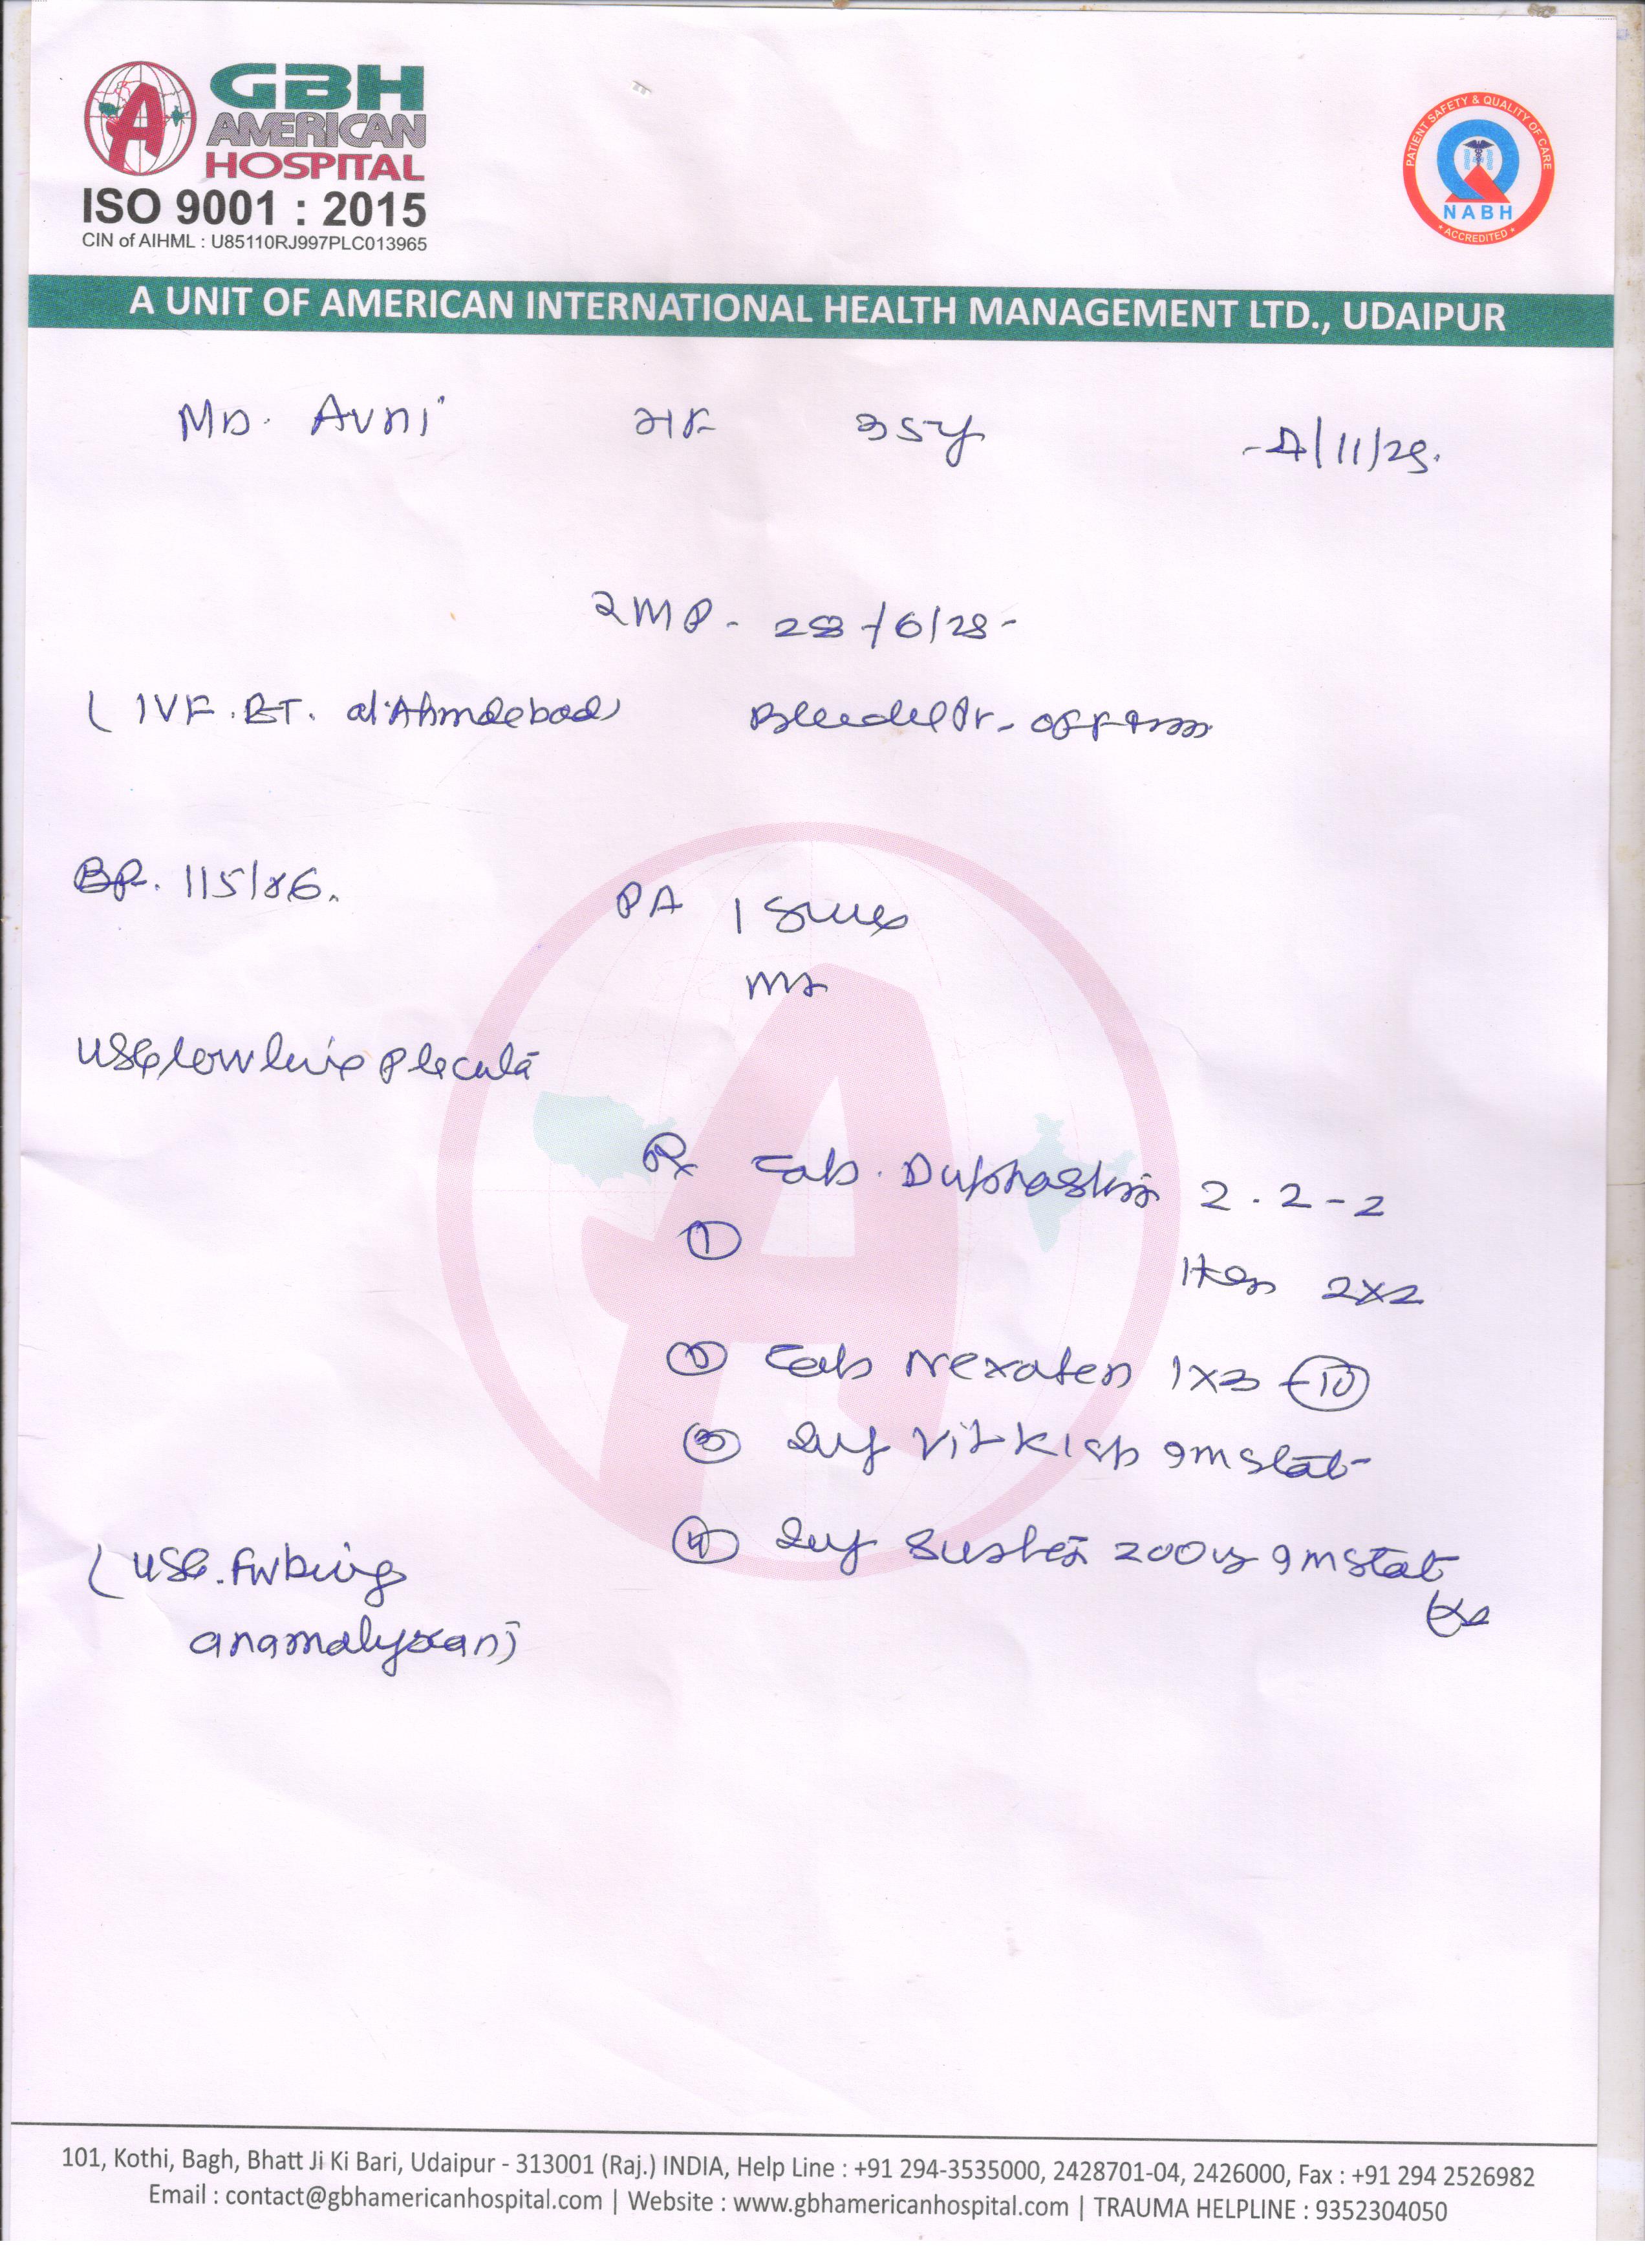 GBH
AMERICAN
HOSPITAL
ISO 9001 : 2015
CIN of AIHML : U85110RJ997PLC013965
PATIENT SAFETY & QUALITY OF CARE
NABH
• ACCREDITED •
A UNIT OF AMERICAN INTERNATIONAL HEALTH MANAGEMENT LTD., UDAIPUR
Avni 35y /11/25.
LMP - 28/6/25-
( IVF. ET. at Ahmdebad)
BP. 115/86.
PA
USG low
Rx Tab. Duphaston 2 . 2 - 2
①
then 2x2
② Tab Nexaten 1x3 - ⑩
③ Inj Vit K 1 stat
④ Inj Susten 200 stat
( USG. Fwbeing
anamalyscan)
101, Kothi, Bagh, Bhatt Ji Ki Bari, Udaipur - 313001 (Raj.) INDIA, Help Line : +91 294-3535000, 2428701-04, 2426000, Fax : +91 294 2526982
Email : contact@gbhamericanhospital.com | Website : www.gbhamericanhospital.com | TRAUMA HELPLINE : 9352304050